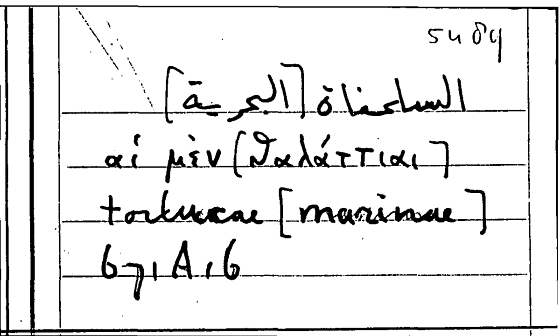 السلحفاة [البحرية]
αἱ μὲν [θαλάττιαι]
tortucae [marinae]
671 A 16